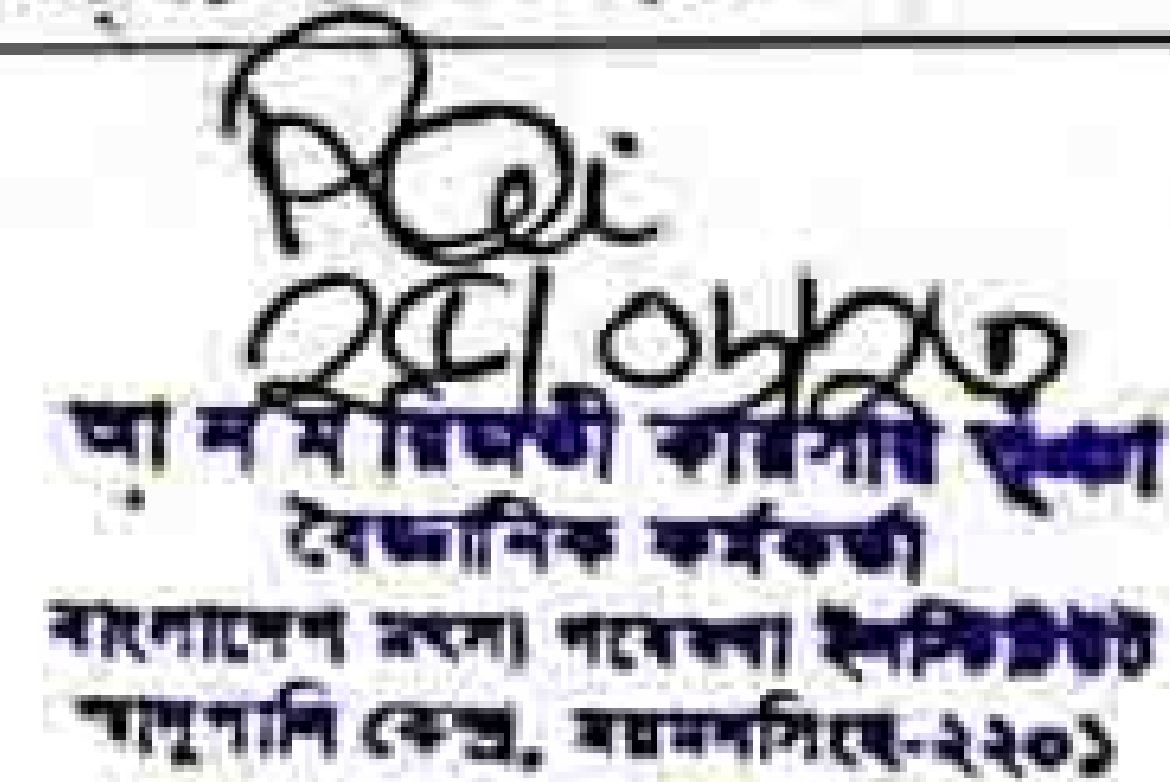 ২৫/০৮/২৩
আ ন ম রিজভী কায়সার
বৈজ্ঞানিক কর্মকর্তা
বাংলাদেশ মৎস্য গবেষণা ইনস্টিটিউট
স্বাদুপানি কেন্দ্র, ময়মনসিংহ-২২০১